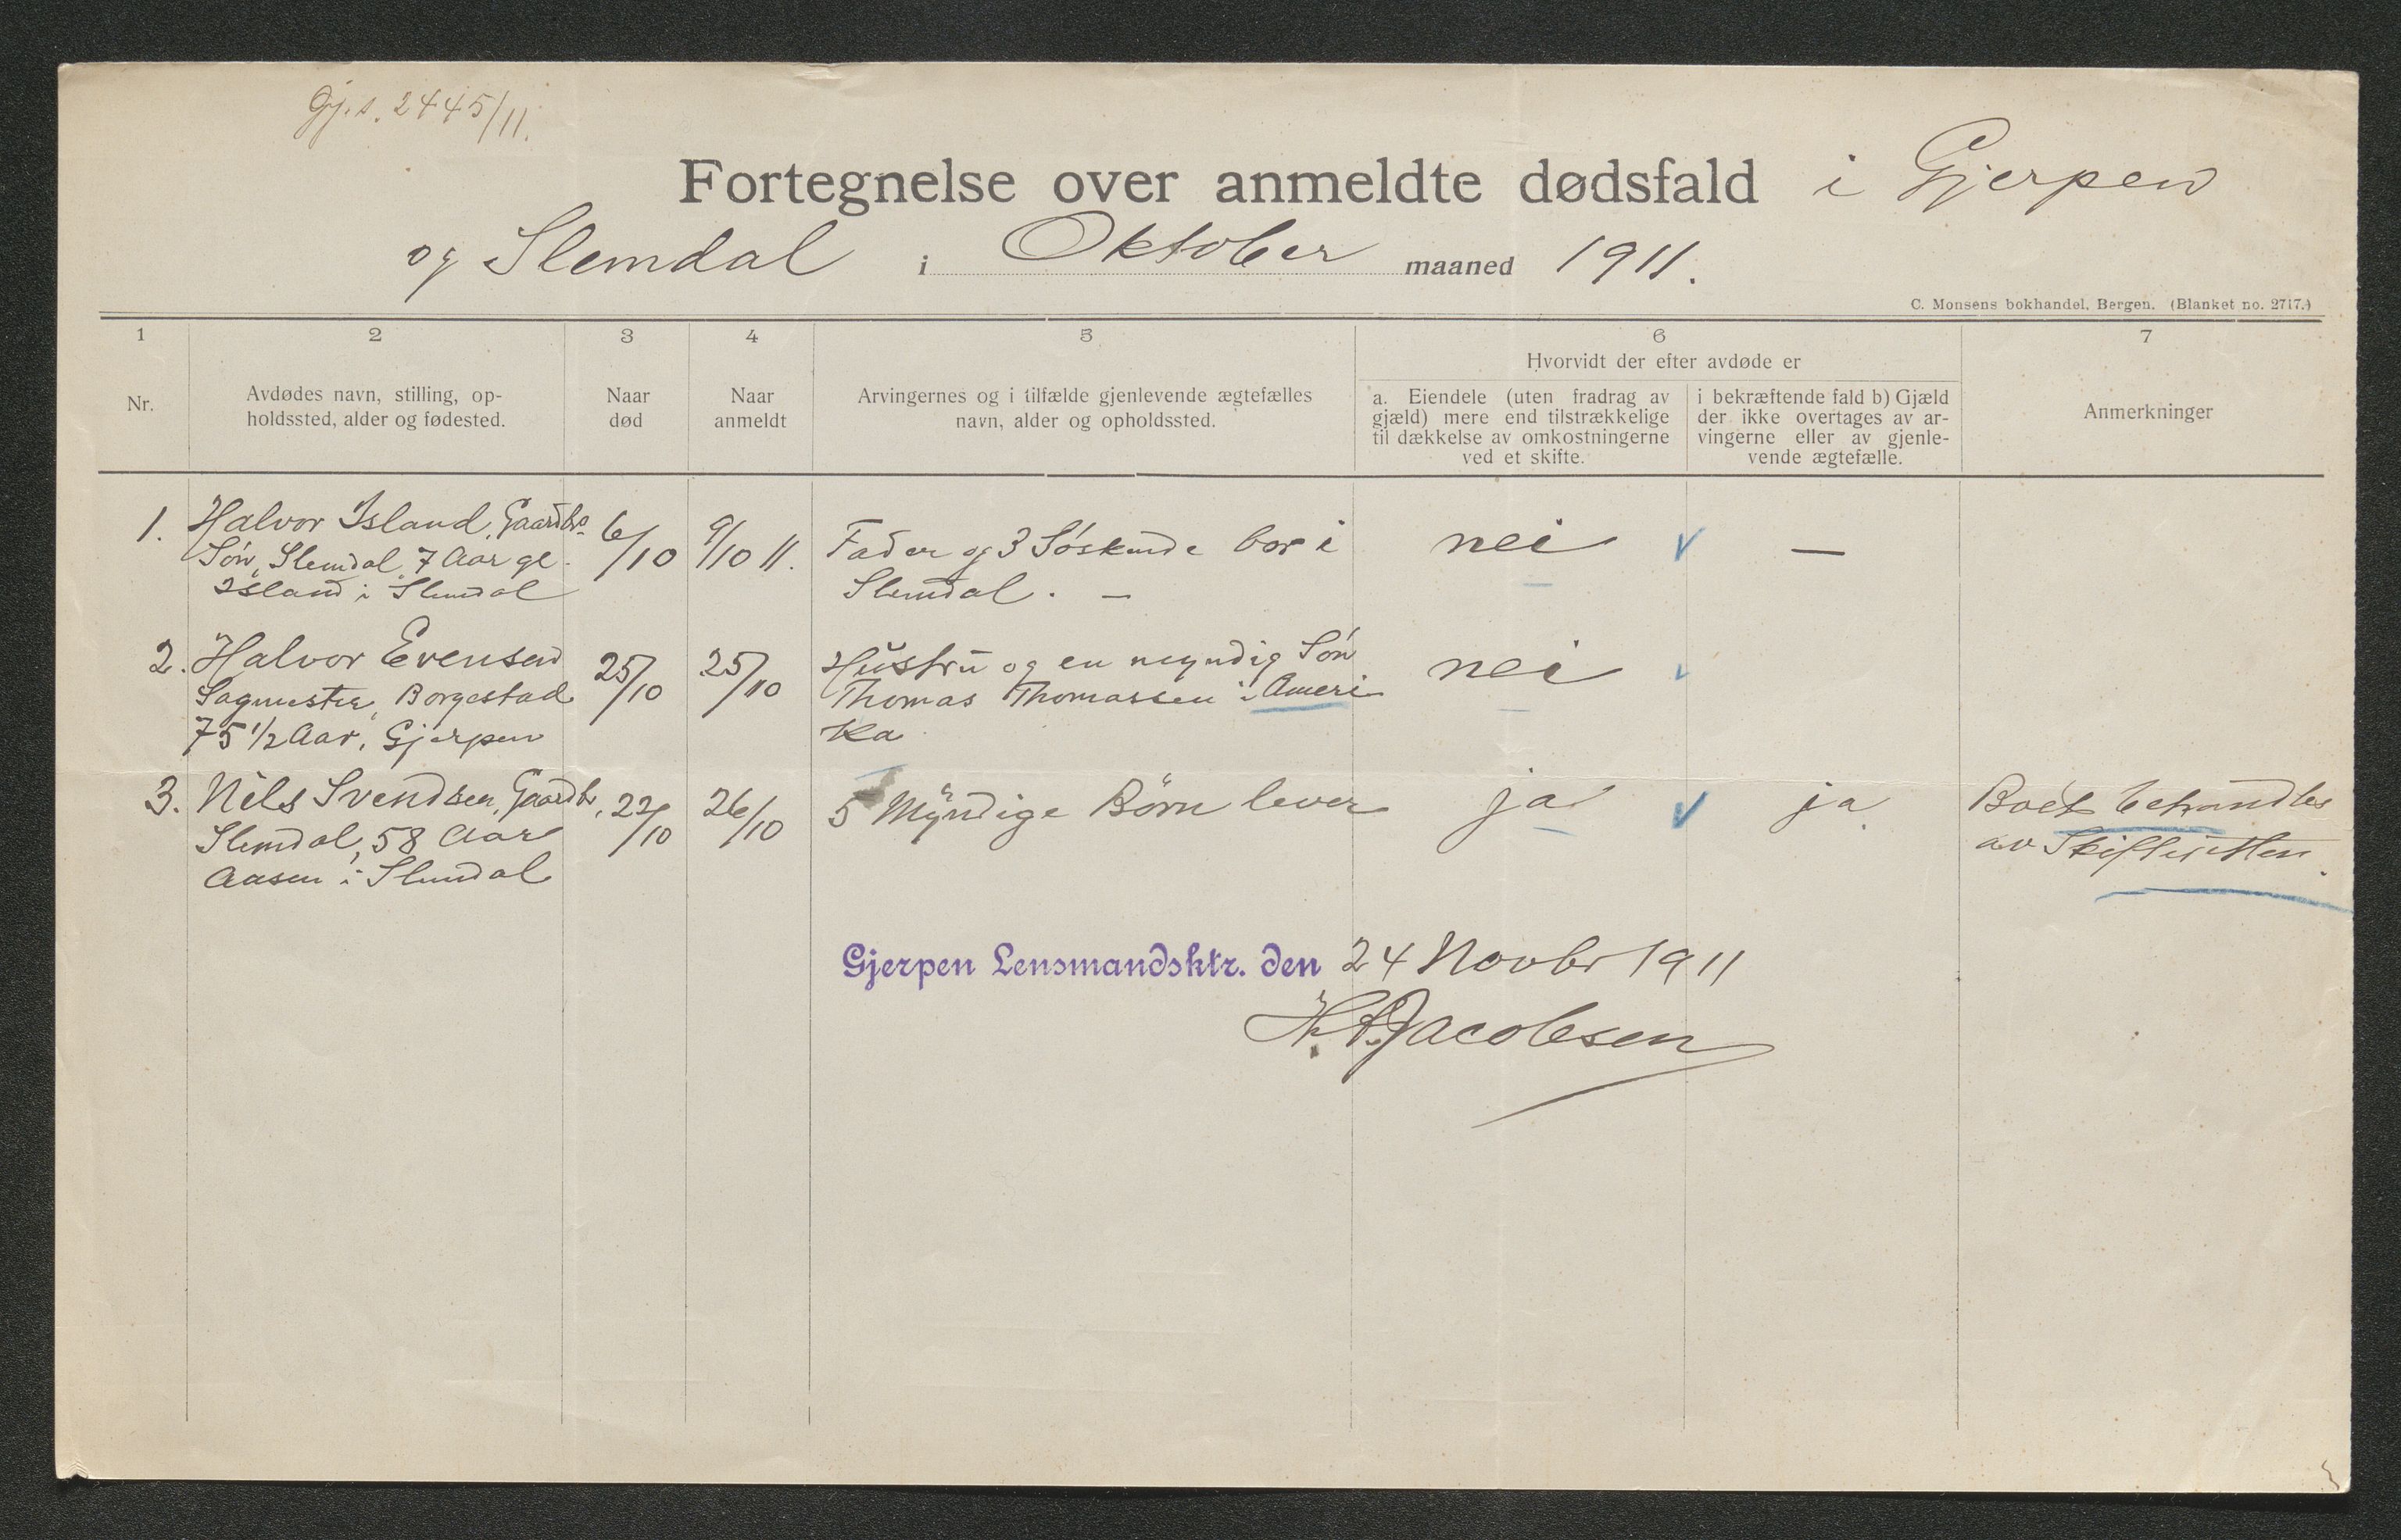 Gj.s. 2445/11.
Fortegnelse over anmeldte dødsfald i Gjerpen
og Slemdal i Oktober maaned 1911.
C. Monsens bokhandel, Bergen. (Blanket no. 2717.)
1 2 3 4 5 6 7
Hvorvidt der efter avdøde er
Nr.
Avdødes navn, stilling, op-
holdssted, alder og fødested.
Naar
død
Naar
anmeldt
Arvingernes og i tilfælde gjenlevende ægtefælles
navn, alder og opholdssted.
a. Eiendele (uten fradrag av
gjæld) mere end tilstrækkelige
til dækkelse av omkostningerne
ved et skifte.
i bekræftende fald b) Gjæld
der ikke overtages av ar-
vingerne eller av gjenle-
vende ægtefælle.
Anmerkninger
1. Halvor Island, Gaardbrs
Søn, Slemdal 7 Aar gl.
Island i Slemdal
6/10
9/10 11.
Fader og 3 Søskende bor i
Slemdal. —
nei
—
2. Halvor Evensen
Sagmester, Borgestad
75 1/2 Aar, Gjerpen
25/10
25/10
Hustru og en myndig Søn
Thomas Thomassen i Ameri
ka
nei
3. Nils Svendsen, Gaardbr,
Slemdal, 58 Aar
Aasen i Slemdal
22/10
26/10
5 Myndige Børn lever
ja
ja
Boet behandles
av Skifteretten.
Gjerpen Lensmandsktr. den 24 Novbr 1911
H. A. Jacobsen